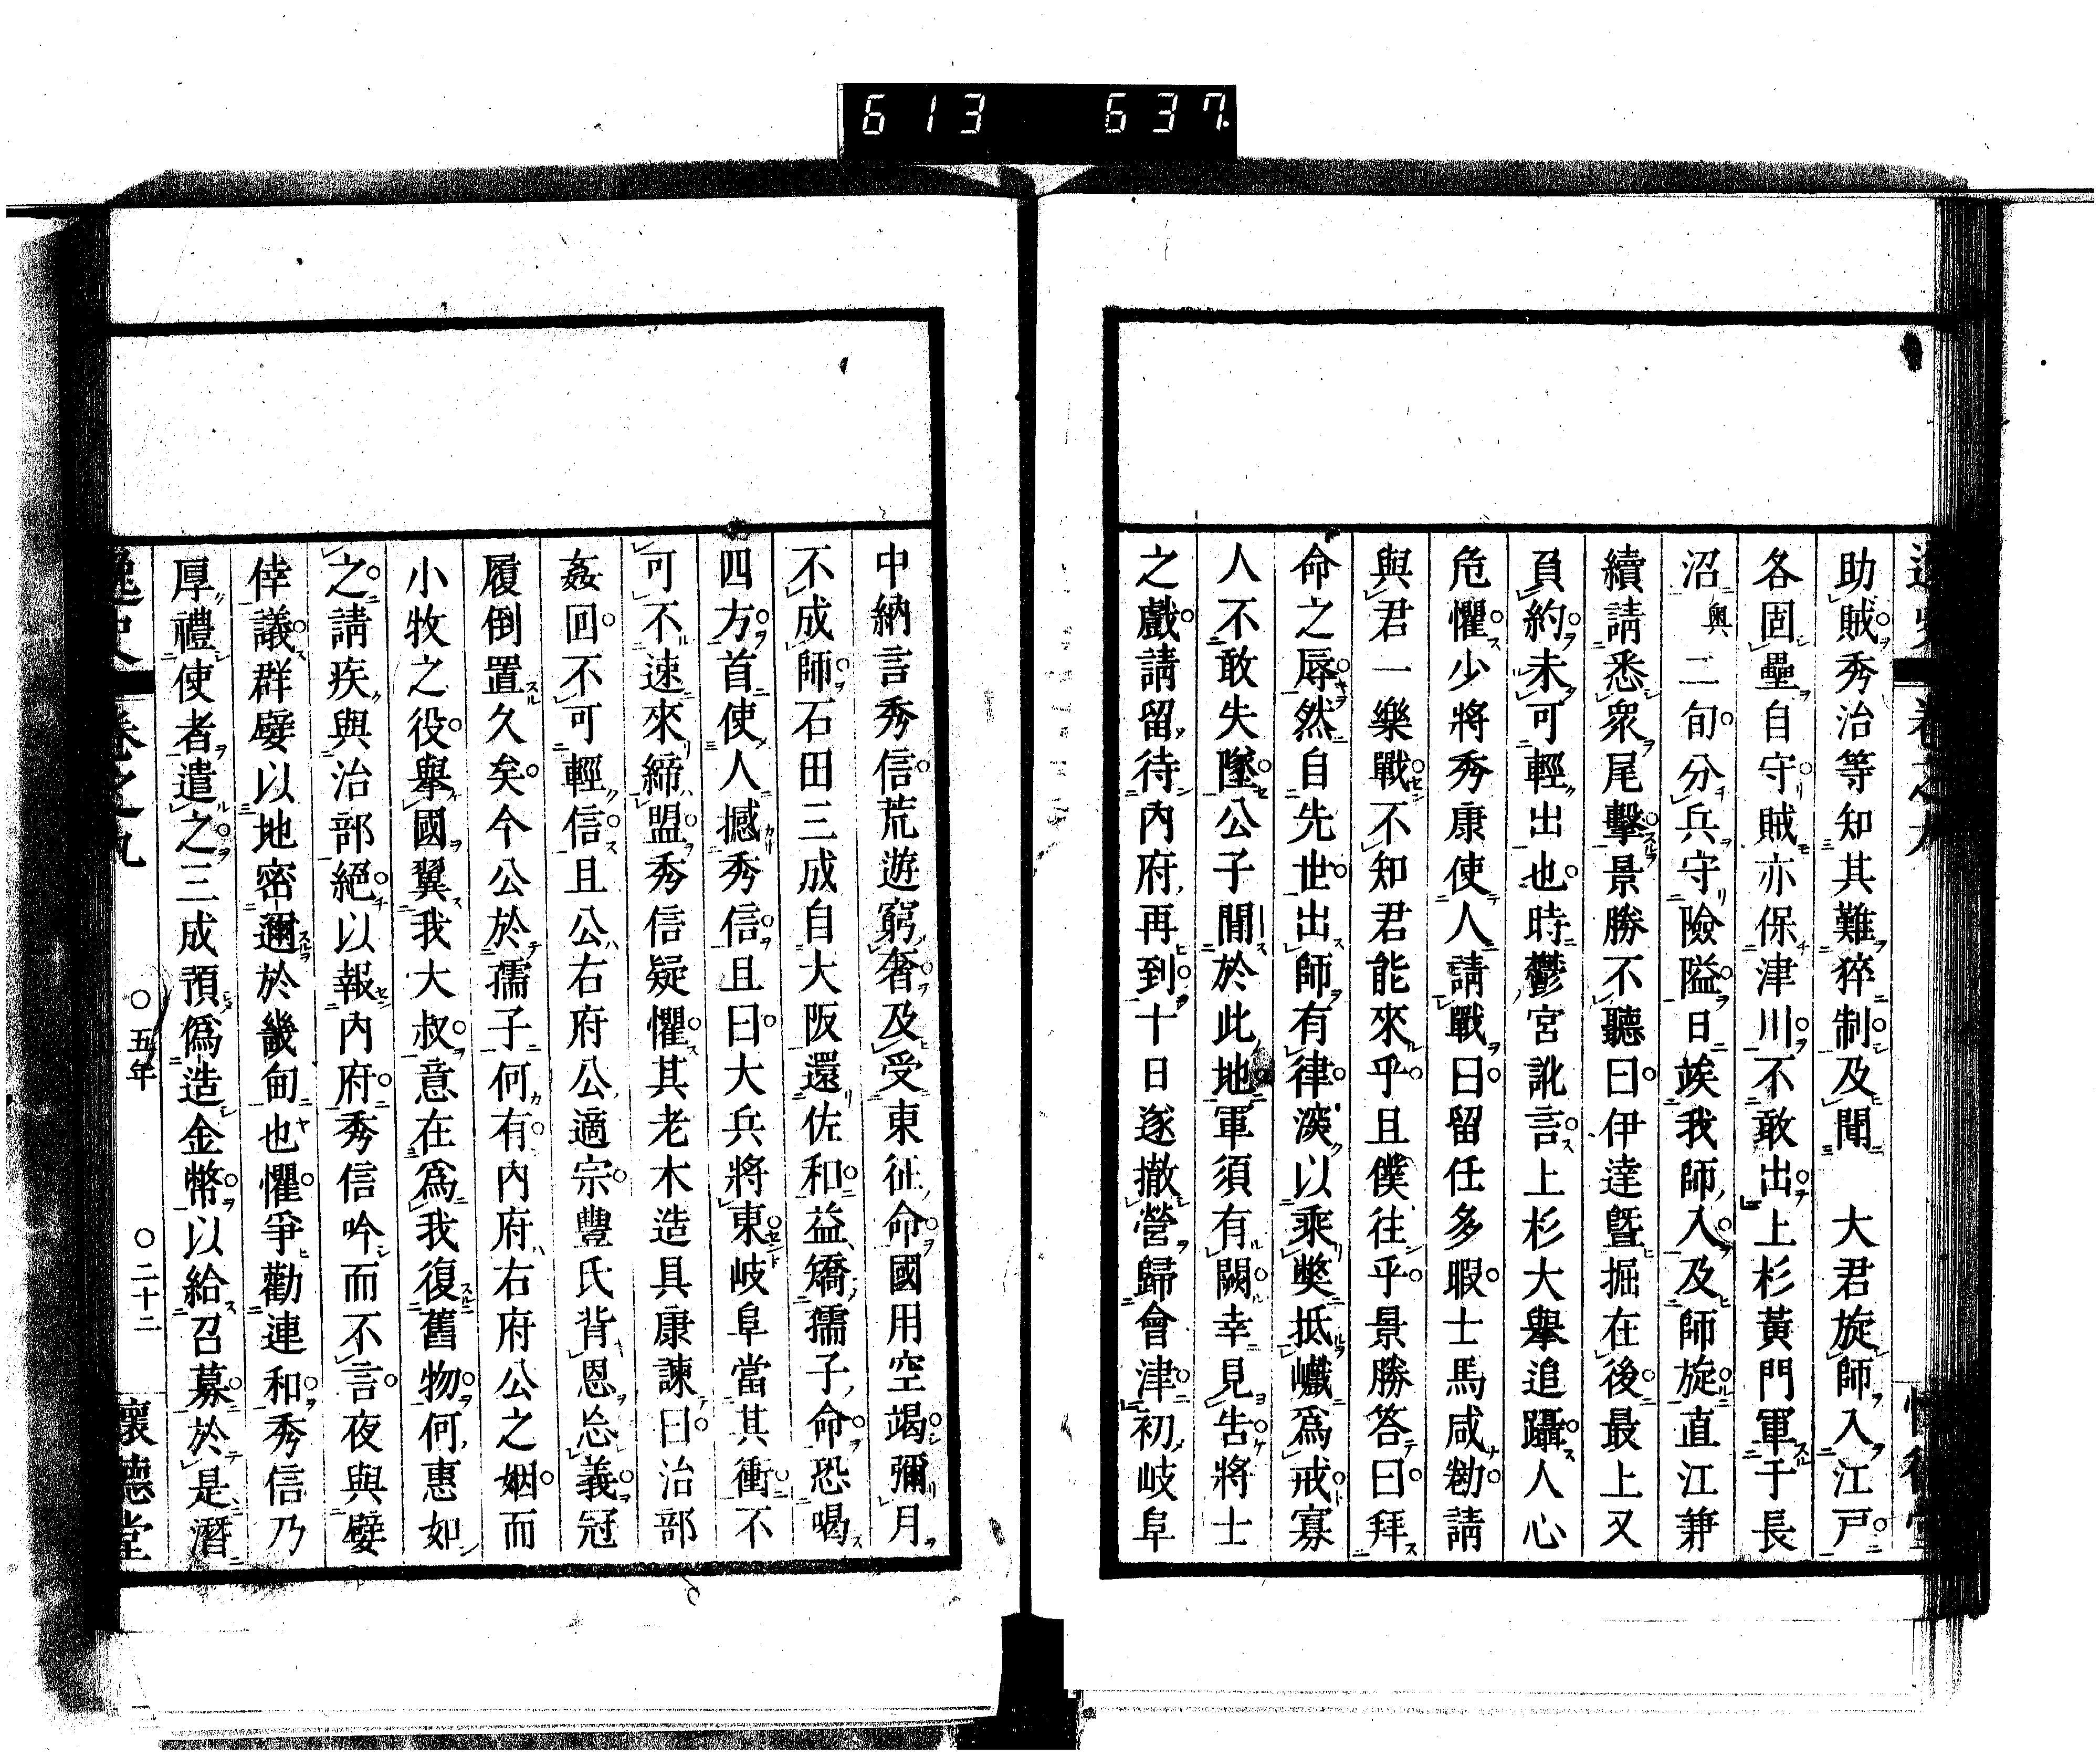 613 637
助賊秀治等知其難猝制及聞　大君旋師入江戸
各固壘自守賊亦保津川不敢出上杉黃門軍于長
沼奥二旬分兵守險隘日竢我師入及師旋直江兼
續請悉衆尾擊景勝不聽曰伊達曁掘在後最上又
負約未可輕出也時鬱宮訛言上杉大擧追躡人心
危懼少將秀康使人請戰曰留任多暇士馬咸勑請
與君一樂戰不知君能來乎且僕往乎景勝答曰拜
命之辱然自先世出師有律湥以乘獘抵巇爲戒寡
人不敢失墜公子閒於此地軍須有闕幸見吿將士
之戲請留待內府再到十日遂撤營歸會津初岐阜
中納言秀信荒遊窮奢及受東征命國用空竭彌月
不成師石田三成自大阪還佐和益矯孺子命恐喝
四方首使人撼秀信且曰大兵將東岐阜當其衝不
可不速來締盟秀信疑懼其老木造具康諫曰治部
姦回不可輕信且公右府公適宗豐氏背恩忘義冠
履倒置久矣今公於孺子何有內府右府公之姻而
小牧之役擧國翼我大叔意在爲我復舊物何惠如
之請疾與治部絕以報內府秀信吟而不言夜與嬖
倖議群嬖以地密邇於畿甸也懼爭勸連和秀信乃
厚禮使者遣之三成預僞造金幣以給召募於是潛
逸史　卷之九　〇五年　〇二十二　懷德堂